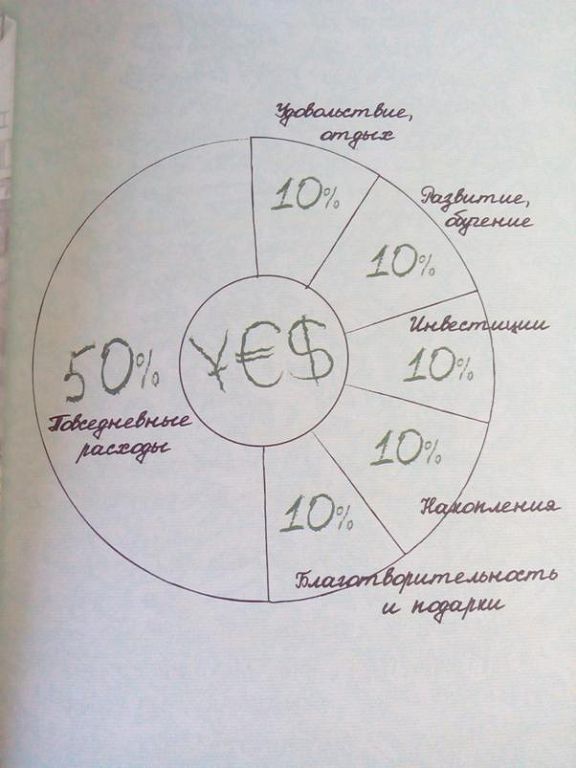 Удовольствие,
отдых
10%
Развитие,
обучение
10%
Инвестиции
10%
¥€$
50%
Повседневные
расходы
10%
Накопления
10%
Благотворительность
и подарки